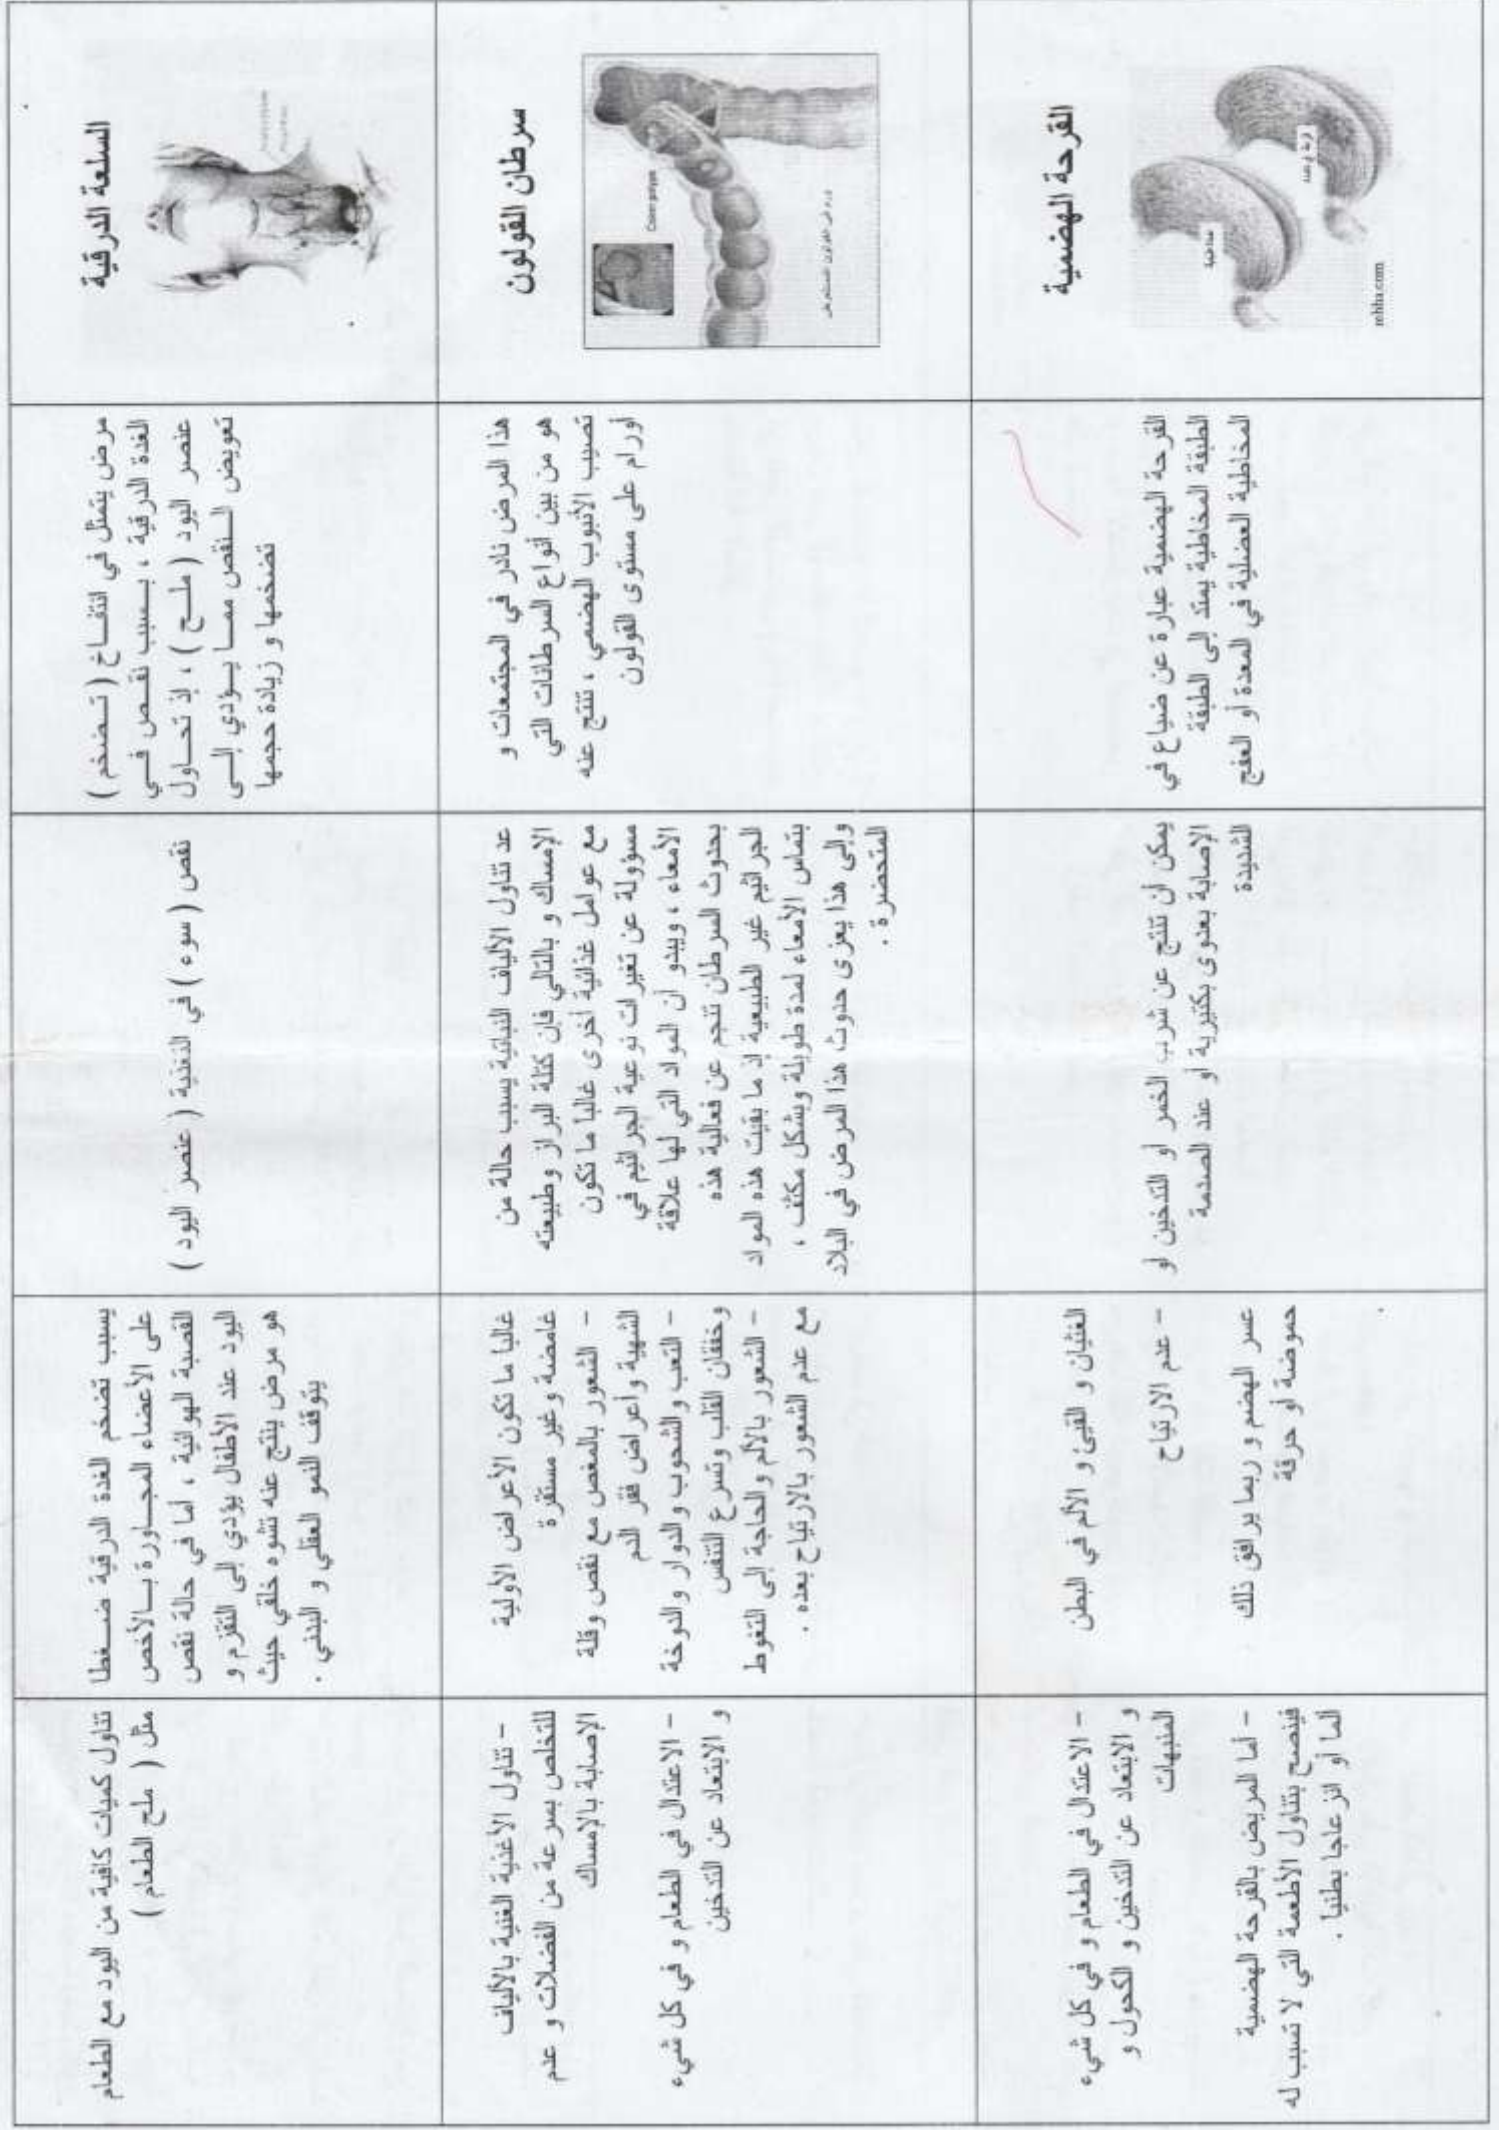 السلعة الدرقية
مرض يتمثل في انتفاخ ( تضخم )
الغدة الدرقية ، بسبب نقص في
عنصر اليود ( ملح ) ، إذ تحاول
تعويض النقص مما يؤدي إلى
تضخمها و زيادة حجمها
نقص ( سوء ) في التغذية ( عنصر اليود )
يسبب تضخم الغدة الدرقية ضغطا
على الأعضاء المجاورة بالأخص
القصبة الهوائية ، أما في حالة نقص
اليود عند الأطفال يؤدي إلى التقزم و
هو مرض ينتج عنه تشوه خلقي حيث
يتوقف النمو العقلي و البدني .
تناول كميات كافية من اليود مع الطعام
مثل ( ملح الطعام )
سرطان القولون
Colon polyps
هذا المرض نادر في المجتمعات و
هو من بين أنواع السرطانات التي
تصيب الأنبوب الهضمي ، تنتج عنه
أورام على مستوى القولون
عد تناول الألياف النباتية يسبب حالة من
الإمساك و بالتالي فإن كتلة البراز وطبيعته
مع عوامل غذائية أخرى غالبا ما تكون
مسؤولة عن تغيرات نوعية الجراثيم في
الأمعاء ، ويبدو أن المواد التي لها علاقة
بحدوث السرطان تنجم عن فعالية هذه
الجراثيم غير الطبيعية إذ ما بقيت هذه المواد
بتماس الأمعاء لمدة طويلة وبشكل مكثف ،
وإلى هذا يعزى حدوث هذا المرض في البلاد
المتحضرة .
غالبا ما تكون الأعراض الأولية
غامضة وغير مستقرة
- الشعور بالمغص مع نقص وقلة
الشهية وأعراض فقر الدم
- التعب والشحوب والدوار والدوخة
وخفقان القلب وتسرع التنفس
- الشعور بالألم والحاجة إلى التغوط
مع عدم الشعور بالارتياح بعده .
- تناول الأغذية الغنية بالألياف
للتخلص بسرعة من الفضلات و عدم
الإصابة بالإمساك
- الاعتدال في الطعام و في كل شيء
و الابتعاد عن التدخين
القرحة الهضمية
rehha.com
القرحة الهضمية عبارة عن ضياع في
الطبقة المخاطية يمتد إلى الطبقة
المخاطية العضلية في المعدة أو العفج
يمكن أن تنتج عن شرب الخمر أو التدخين أو
الإصابة بعدوى بكتيرية أو عند الصدمة
الشديدة
الغثيان و القيئ و الألم في البطن
- عدم الارتياح
عسر الهضم و ربما يرافق ذلك
حموضة أو حرقة
- الاعتدال في الطعام و في كل شيء
و الابتعاد عن التدخين و الكحول و
المنبهات
- أما المريض بالقرحة الهضمية
فينصح بتناول الأطعمة التي لا تسبب له
ألما أو انزعاجا بطنيا .